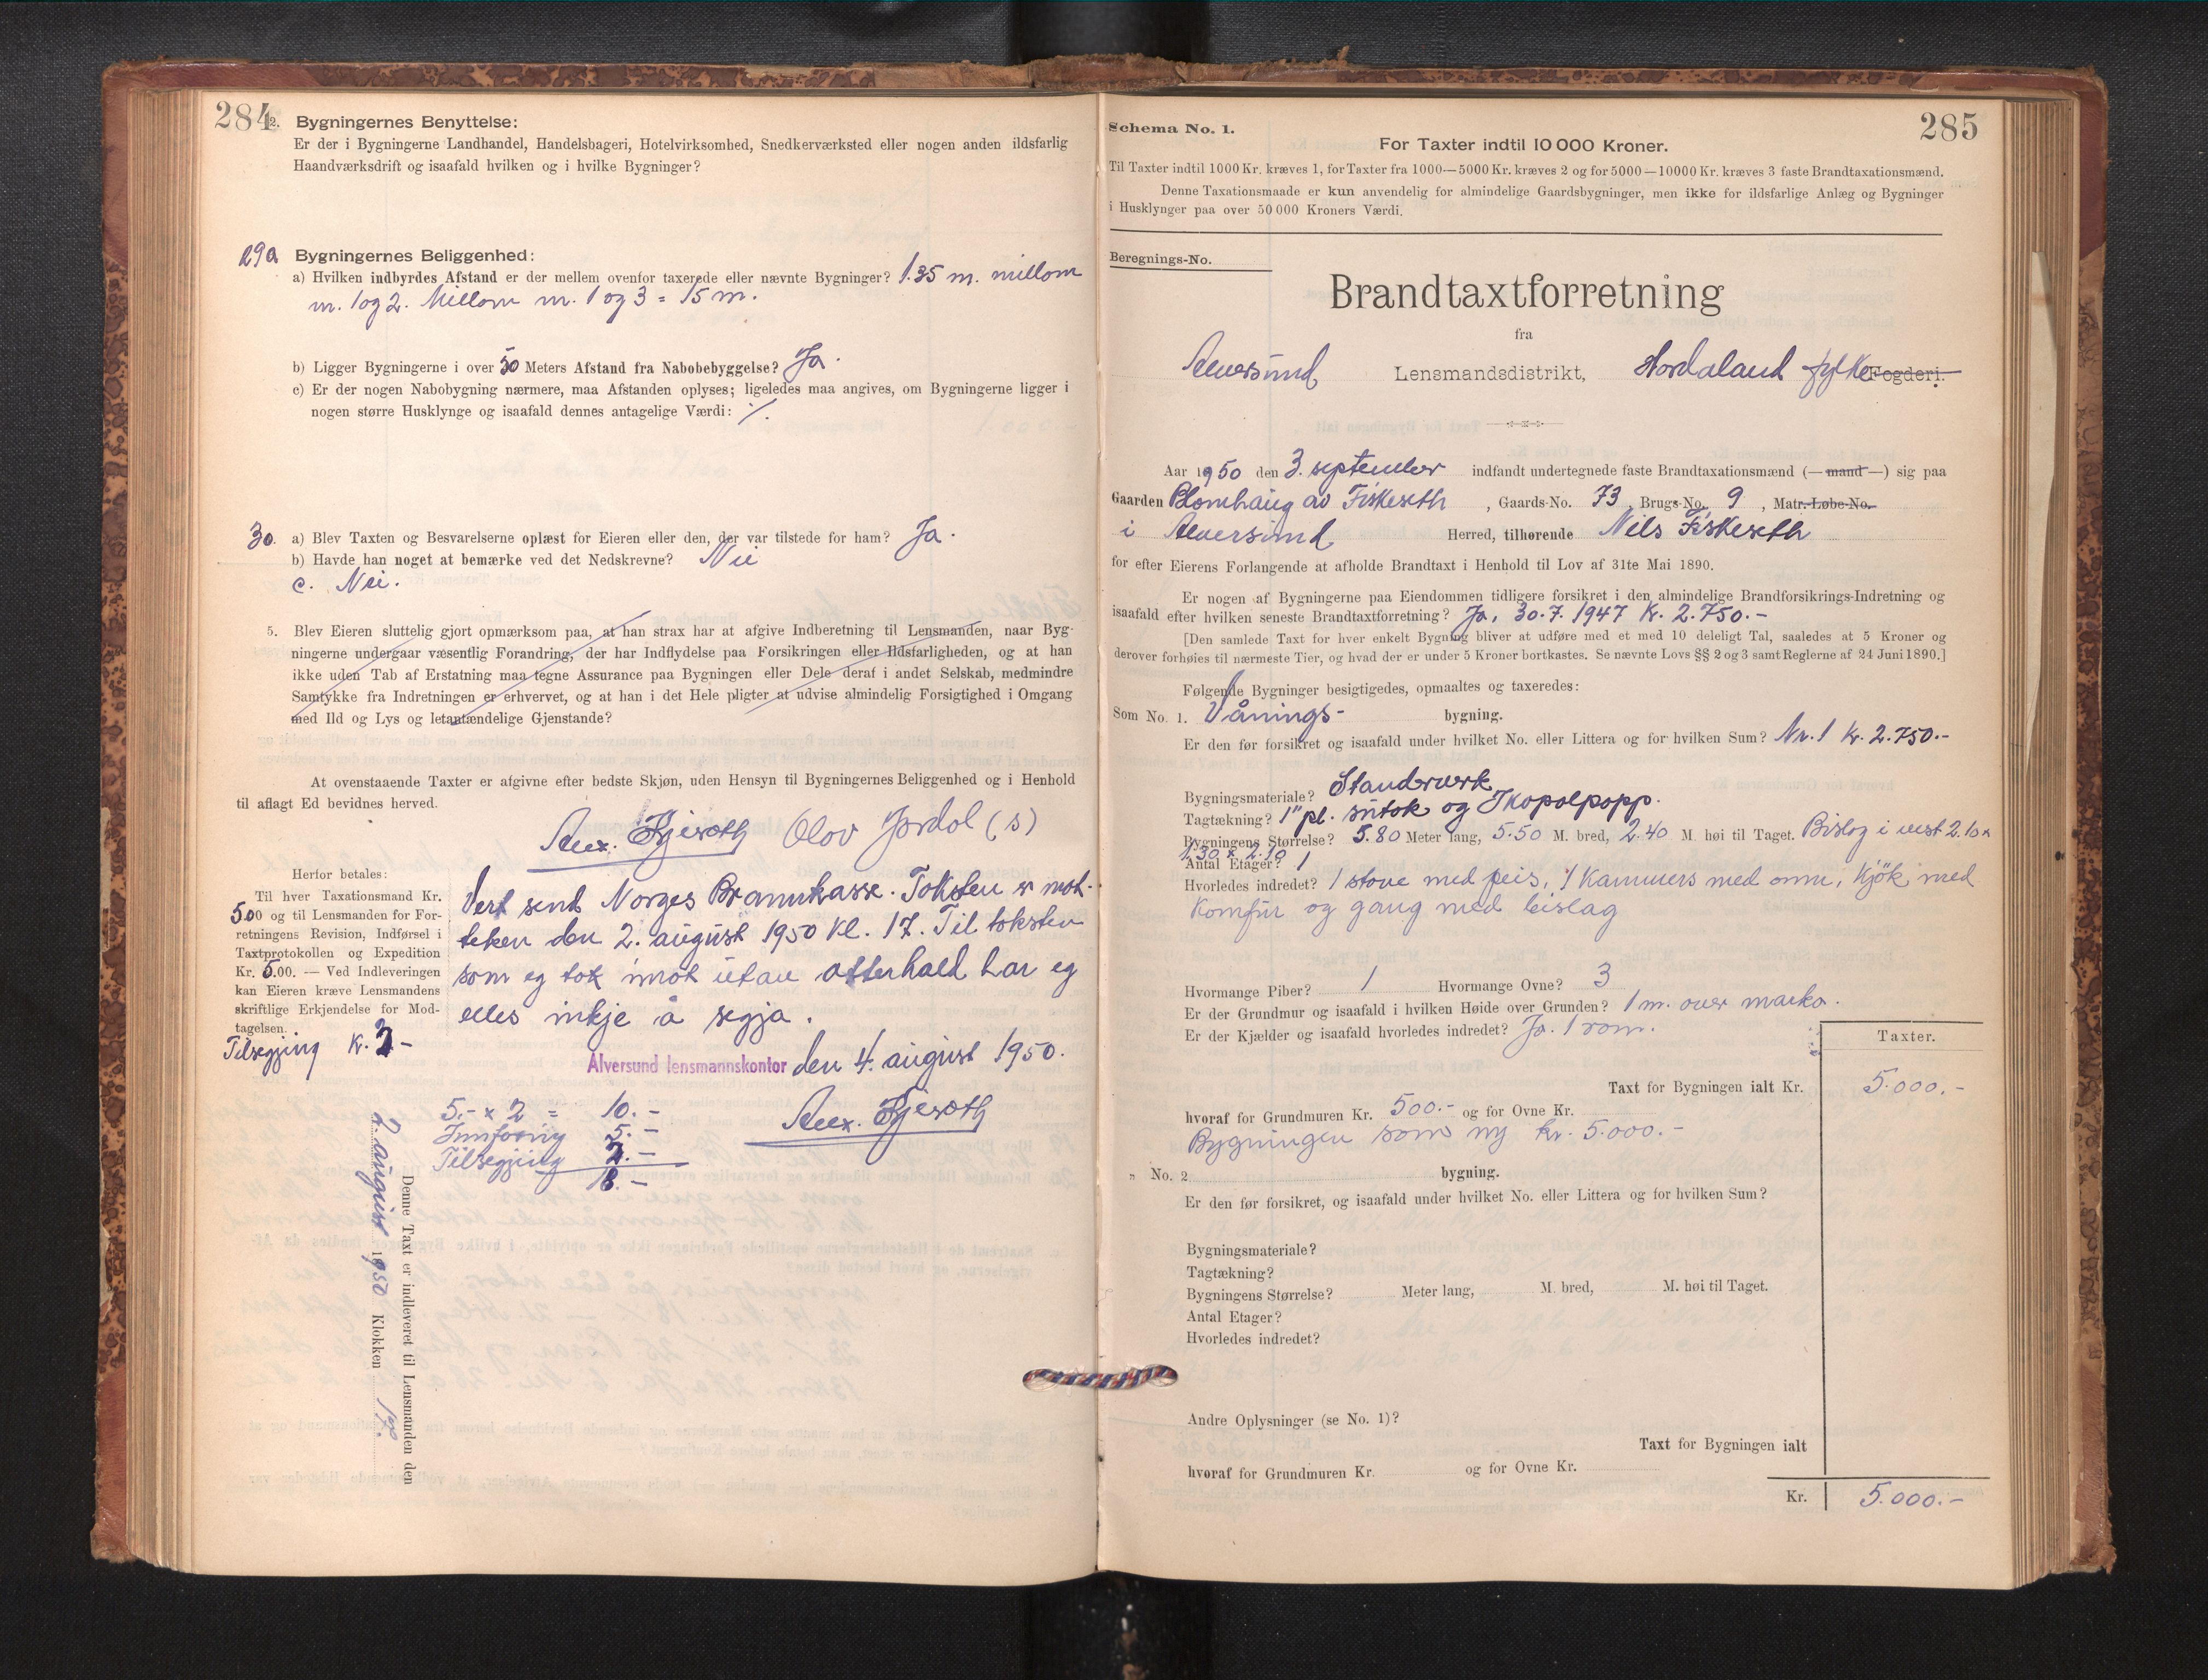 284
2. Bygningernes Benyttelse:
Er der i Bygningerne Landhandel, Handelsbageri, Hotelvirksomhed, Snedkerværksted eller nogen anden ildsfarlig
Haandværksdrift og isaafald hvilken og i hvilke Bygninger?
29a Bygningernes Beliggenhed:
a) Hvilken indbyrdes Afstand er der mellem ovenfor taxerede eller nævnte Bygninger? 1.35 m. millom
nr. 1 og 2. Millom nr. 1 og 3 = 15 m.
b) Ligger Bygningerne i over 50 Meters Afstand fra Nabobebyggelse? Ja.
c) Er der nogen Nabobygning nærmere, maa Afstanden oplyses; ligeledes maa angives, om Bygningerne ligger i
nogen større Husklynge og isaafald dennes antagelige Værdi: ⁒
30. a) Blev Taxten og Besvarelserne oplæst for Eieren eller den, der var tilstede for ham? Ja.
b) Havde han noget at bemærke ved det Nedskrevne? Nei
c. Nei.
5. Blev Eieren sluttelig gjort opmærksom paa, at han strax har at afgive Indberetning til Lensmanden, naar Byg-
ningerne undergaar væsentlig Forandring, der har Indflydelse paa Forsikringen eller Ildsfarligheden, og at han
ikke uden Tab af Erstatning maa tegne Assurance paa Bygningen eller Dele deraf i andet Selskab, medmindre
Samtykke fra Indretningen er erhvervet, og at han i det Hele pligter at udvise almindelig Forsigtighed i Omgang
med Ild og Lys og letantændelige Gjenstande?
At ovenstaaende Taxter er afgivne efter bedste Skjøn, uden Hensyn til Bygningernes Beliggenhed og i Henhold
til aflagt Ed bevidnes herved.
Alex. Olov Jordol (s)
Herfor betales:
Til hver Taxationsmand Kr.
5.00 og til Lensmanden for For-
retningens Revision, Indførsel i
Taxtprotokollen og Expedition
Kr. 5.00. — Ved Indleveringen
kan Eieren kræve Lensmandens
skriftlige Erkjendelse for Mod-
tagelsen.
Tilsegjing Kr. 3.-
Vert send Norges Brannkasse. Taksten er mot-
teken den 2. august 1950 kl. 17. Til taksten
som eg tok imot utan atterhald har eg
elles inkje å segja.
Alversund lensmannskontor den 4. august 1950.
Alex.
5.- x 2 = 10.-
Innføring 5.-
Tilsegjing 3.-
18.-
Denne Taxt er indleveret til Lensmanden den
2. august 1950 Klokken 17.
285
Schema No. 1.
For Taxter indtil 10 000 Kroner.
Til Taxter indtil 1000 Kr. kræves 1, for Taxter fra 1000—5000 Kr. kræves 2 og for 5000—10000 Kr. kræves 3 faste Brandtaxationsmænd.
Denne Taxationsmaade er kun anvendelig for almindelige Gaardsbygninger, men ikke for ildsfarlige Anlæg og Bygninger
i Husklynger paa over 50 000 Kroners Værdi.
Beregnings-No.
Brandtaxtforretning
fra
Alversund Lensmandsdistrikt, Hordaland fylke Fogderi.
Aar 1950 den 3. september indfandt undertegnede faste Brandtaxationsmænd (—mand—) sig paa
Gaarden Blomhaug av Fiskeseth, Gaards-No. 73, Brugs-No. 9, Matr.-Løbe-No.
i Alversund Herred, tilhørende Nils Fiskeseth
for efter Eierens Forlangende at afholde Brandtaxt i Henhold til Lov af 31te Mai 1890.
Er nogen af Bygningerne paa Eiendommen tidligere forsikret i den almindelige Brandforsikrings-Indretning og
isaafald efter hvilken seneste Brandtaxtforretning? Ja, 30.7.1947 Kr. 2.750.-
[Den samlede Taxt for hver enkelt Bygning bliver at udføre med et med 10 deleligt Tal, saaledes at 5 Kroner og
derover forhøies til nærmeste Tier, og hvad der er under 5 Kroner bortkastes. Se nævnte Lovs §§ 2 og 3 samt Reglerne af 24 Juni 1890.]
Følgende Bygninger besigtigedes, opmaaltes og taxeredes:
Som No. 1. Vånings- bygning.
Er den før forsikret og isaafald under hvilket No. eller Littera og for hvilken Sum? Nr. 1 Kr. 2.750.-
Bygningsmateriale? Standverk
Tagtækning? 1" pl. sutak og Ikopalpapp.
Bygningens Størrelse? 5.80 Meter lang, 5.50 M. bred, 2.40 M. høi til Taget. Bislag i vest 2.10 x
1.30 x 2.10
Antal Etager? 1
Hvorledes indredet? 1 stove med peis, 1 kammers med omn, kjøk med
komfur og gang med bislag
Hvormange Piber? 1 Hvormange Ovne? 3
Er der Grundmur og isaafald i hvilken Høide over Grunden? 1 m. over marka.
Er der Kjælder og isaafald hvorledes indredet? Ja. 1 rom.
Taxter.
Taxt for Bygningen ialt Kr. 5.000.-
hvoraf for Grundmuren Kr. 500.- og for Ovne Kr.
Bygningen som ny kr. 5.000.-
" No. 2 bygning.
Er den før forsikret, og isaafald under hvilket No. eller Littera og for hvilken Sum?
Bygningsmateriale?
Tagtækning?
Bygningens Størrelse? Meter lang, M. bred, M. høi til Taget.
Antal Etager?
Hvorledes indredet?
Andre Oplysninger (se No. 1)?
Taxt for Bygningen ialt
hvoraf for Grundmuren Kr. og for Ovne Kr.
Kr. 5.000.-